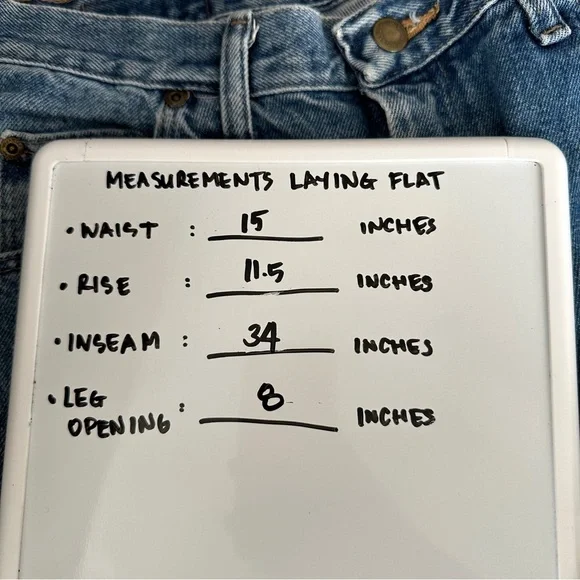 MEASUREMENTS LAYING FLAT
• WAIST : 15 INCHES
• RISE : 11.5 INCHES
• INSEAM : 34 INCHES
• LEG
OPENING : 8 INCHES